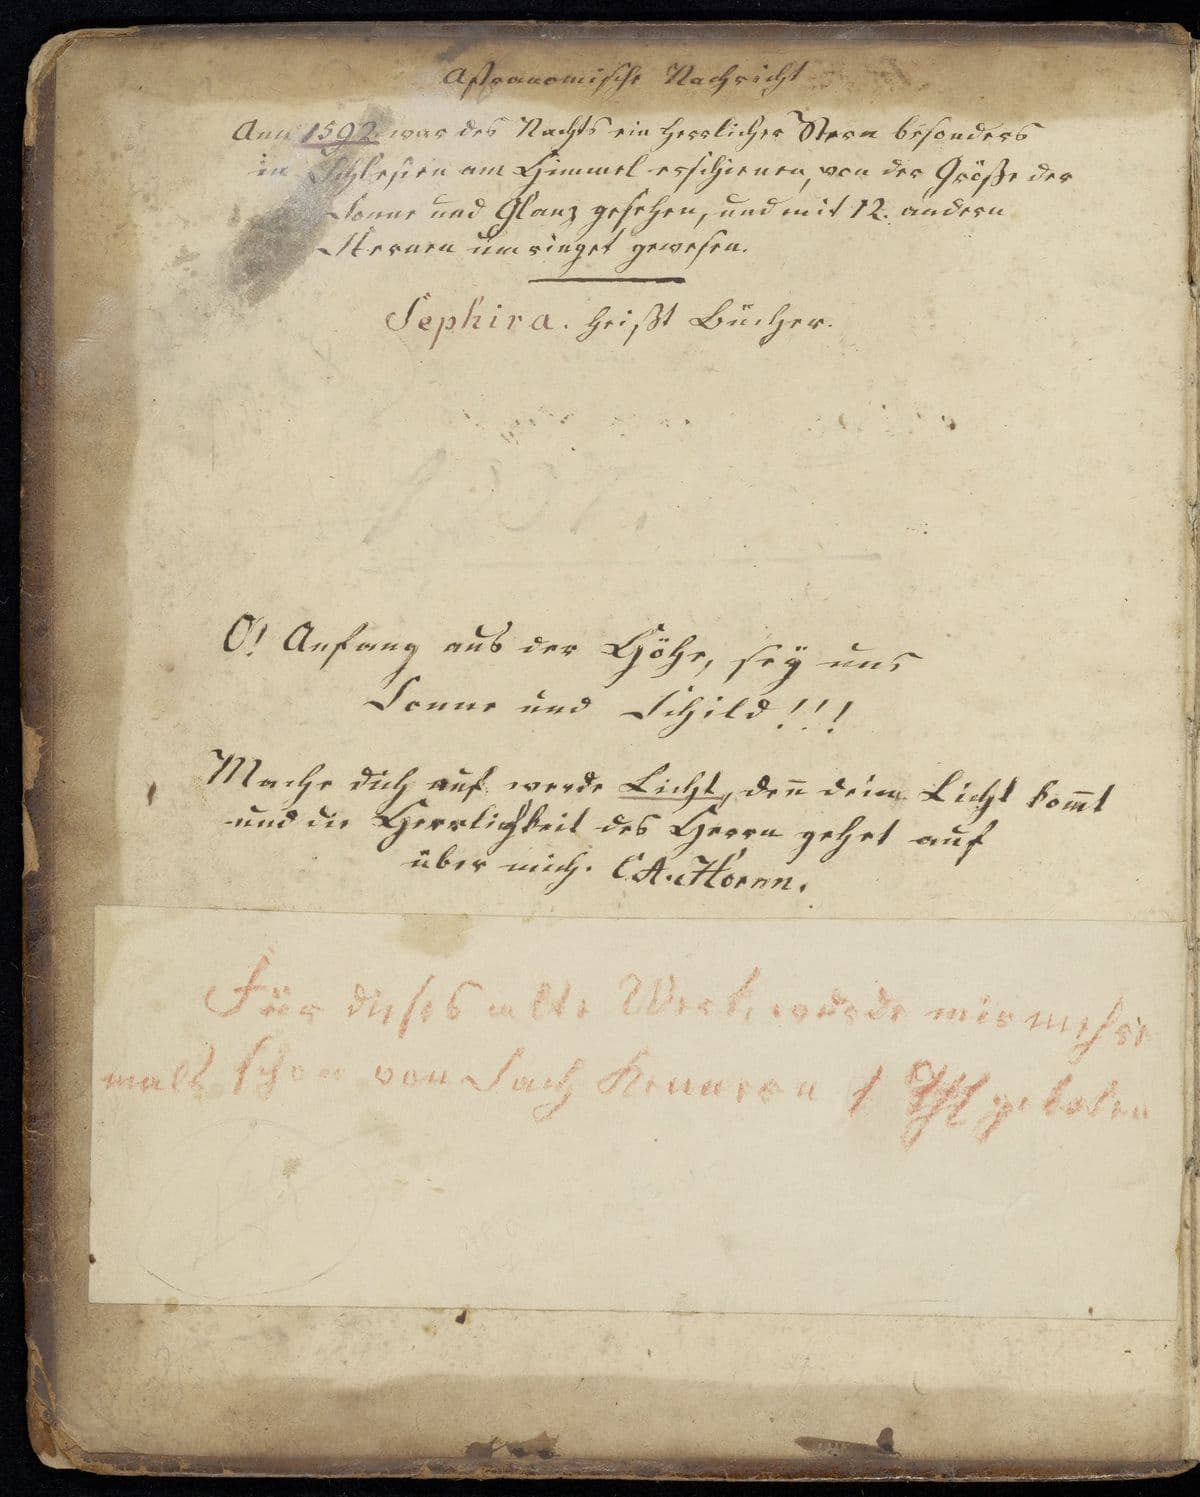 Astronomische Nachricht
Ann 1592 war des Nachts ein herrlicher Stern besonders
in Schlesien am Himmel erschienen, von der Größe der
Sonne und Glanz gesehen, und mit 12. andern
Sternen umringet gewesen.
Sephira. heißt Bücher.
O! Anfang aus der Höhe, seÿ uns
Sonne und Schild!!!
Mache dich auf werde Licht, den̅ dein Licht kom̅t
und die Herrlichkeit des Herrn gehet auf
über mich. C.A. Hornn.
Für dieses alte Werk, wurde mir mehre
mals schon von Sach Kennern 1 geboten